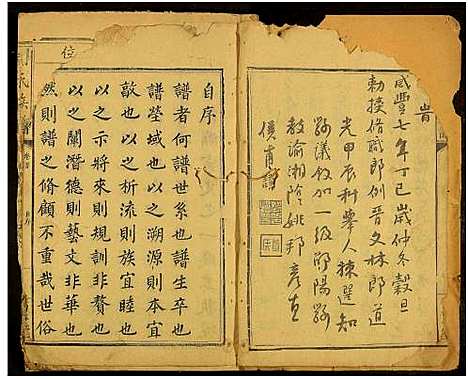 旹
咸豐七年丁巳歲仲冬穀旦
勅授修職郎例晋文林郎道
光甲辰科舉人揀選知
縣議敘加一級邵陽縣
教諭湘陰姚邦彥直
侯甫譔
自序
譜者何譜世系也譜生卒也
譜塋域也以之溯源則本宜
敬也以之析流則族宜睦也
以之示將來則規訓非贅也
以之闡潛德則藝文非華也
然則譜之修顧不重哉世俗
位